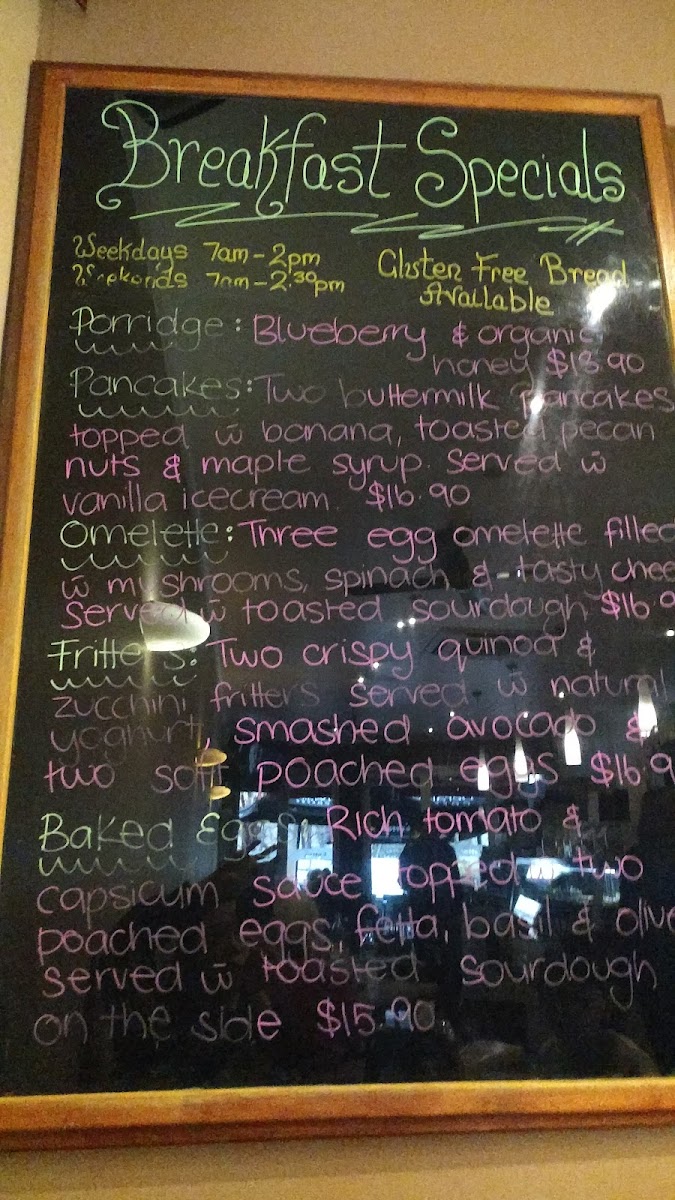 Breakfast Specials
Weekdays 7am - 2pm
Weekends 7am - 2.30pm
Gluten Free Bread
Available
Porridge: Blueberry & organic
honey $13.90
Pancakes: Two buttermilk pancakes
topped w banana, toasted pecan
nuts & maple syrup. Served w
vanilla icecream. $16.90
Omelette: Three egg omelette filled
w mushrooms, spinach & tasty chee
served w toasted sourdough $16.9
Fritters: Two crispy quinoa &
zucchini fritters served w natural
yoghurt, smashed avocado &
two soft poached eggs $16.9
Baked Eggs: Rich tomato &
capsicum sauce topped w two
poached eggs, fetta, basil & olive
served w toasted sourdough
on the side $15.90